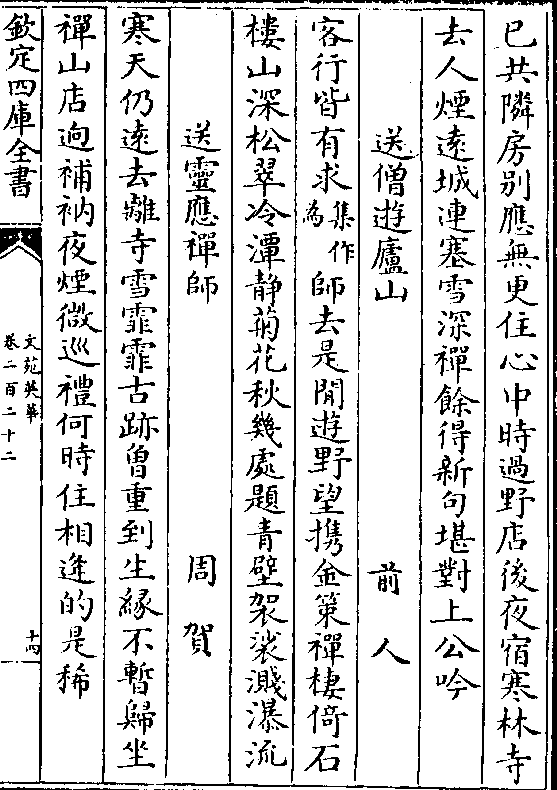 已共隣房别應無更住心中時過野店後夜宿寒林寺
去人煙遠城連塞雪深禪餘得新句堪對上公吟
送僧遊廬山　前人
客行皆有求集作為師去是閒遊野望携金策禪棲倚石
樓山深松翠冷潭静菊花秋幾處題青壁袈裟濺瀑流
送靈應禪師　周賀
寒天仍遠去離寺雪霏霏古跡曾重到生緣不暫歸坐
禪山店逈補衲夜煙微巡禮何時住相逢的是稀
欽定四庫全書
文苑英華
卷二百二十二
十四